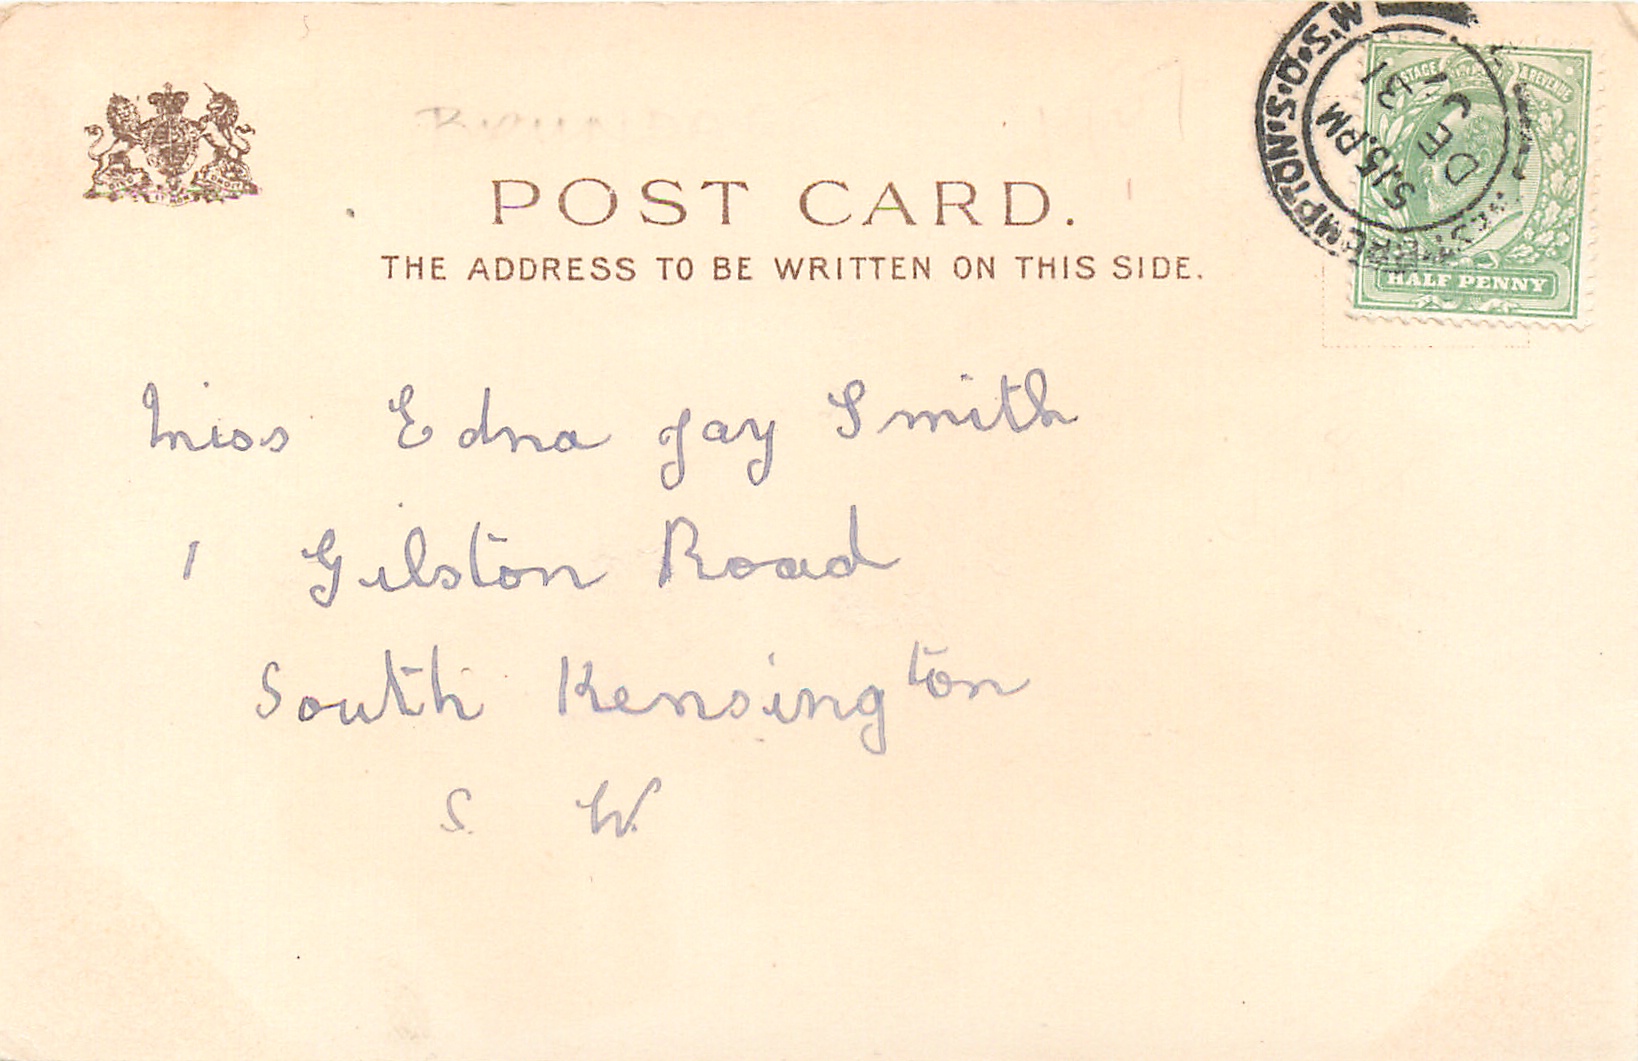 POST CARD.
THE ADDRESS TO BE WRITTEN ON THIS SIDE.
POSTAGE & REVENUE
HALF PENNY
BROMPTON.S.O.S.W
5.15.PM
DE 31
Miss Edna Jay Smith
1 Gilston Road
South Kensington
S. W.